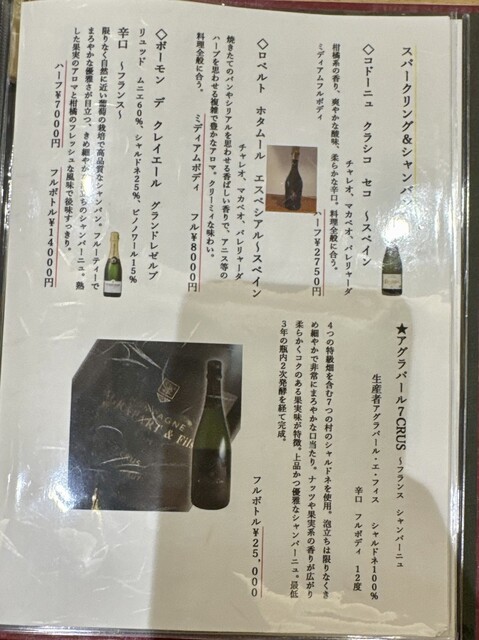 スパークリング&シャンパン
◇コドーニュ クラシコ セコ ～スペイン
チャレオ、マカベオ、パレリャーダ
柑橘系の香り、爽やかな酸味、柔らかな辛口。料理全般に合う。
ミディアムフルボディ
ハーフ¥2750円
◇ロベルト ホタムール エスペシアル～スペイン
チャレオ、マカベオ、パレリャーダ
焼きたてのパンやシリアルを思わせる香ばしい香りで、アニス等の
ハーブを思わせる複雑で豊かなアロマ。クリーミィな味わい。
料理全般に合う。
ミディアムボディ フル¥8000円
◇ボーモン デ クレイエール グランドレゼルブ
リュッド ムニエ60%、シャルドネ25%、ピノノワール15%
辛口 ～フランス～
限りなく自然に近い葡萄の栽培で高品質なシャンパン。フルーティーで
まろやかな優雅さが目立つ、きめ細やかな泡立ちのシャンパーニュ。熟
した果実のアロマと柑橘のフレッシュな風味で後味すっきり。
ハーフ¥7000円 フルボトル¥14000円
★アグラパール7CRUS ～フランス シャンパーニュ
生産者アグラパール・エ・フィス シャルドネ100%
辛口 フルボディ 12度
4つの特級畑を含む7つの村のシャルドネを使用。泡立ちは限りなくき
め細やかで非常にまろやかな口当たり。ナッツや果実系の香りが広がり
柔らかくコクのある果実味が特徴。上品かつ優雅なシャンパーニュ。最低
3年の瓶内2次発酵を経て完成。
フルボトル¥25,000